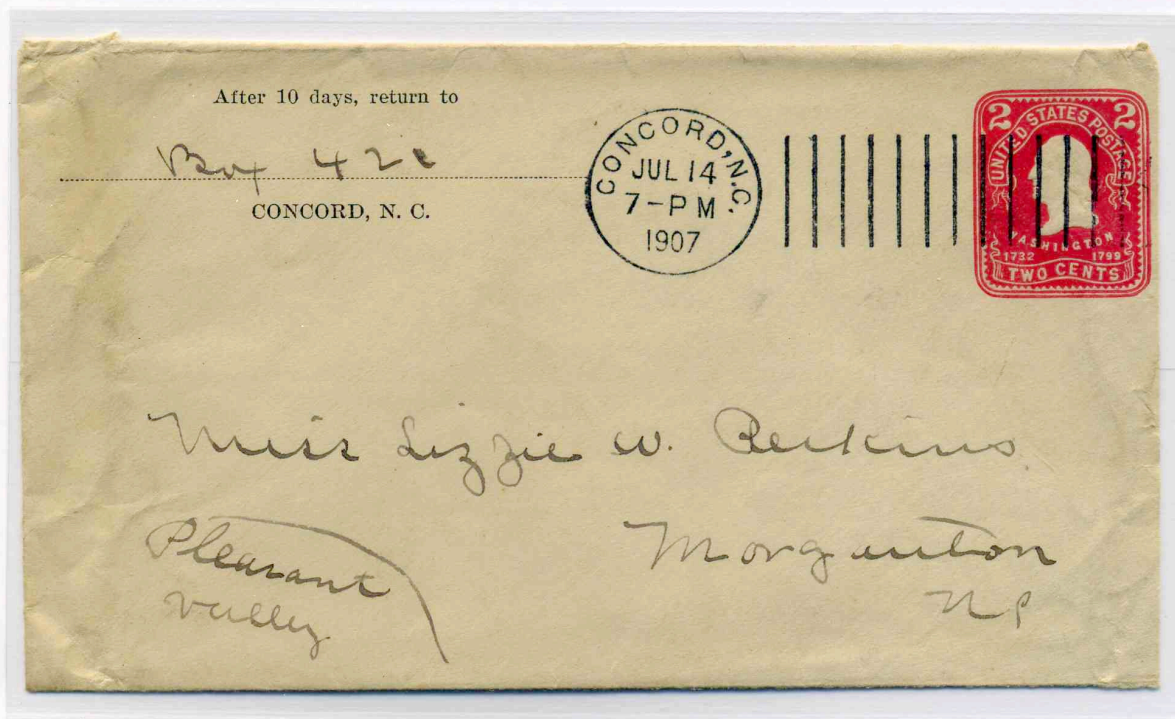 After 10 days, return to
Box 42
CONCORD, N. C.
CONCORD, N.C.
JUL 14
7-PM
1907
2 2
UNITED STATES POSTAGE
WASHINGTON
1732 1799
TWO CENTS
Miss Lizzie W. Perkins
Morganton
NC
Pleasant
Valley